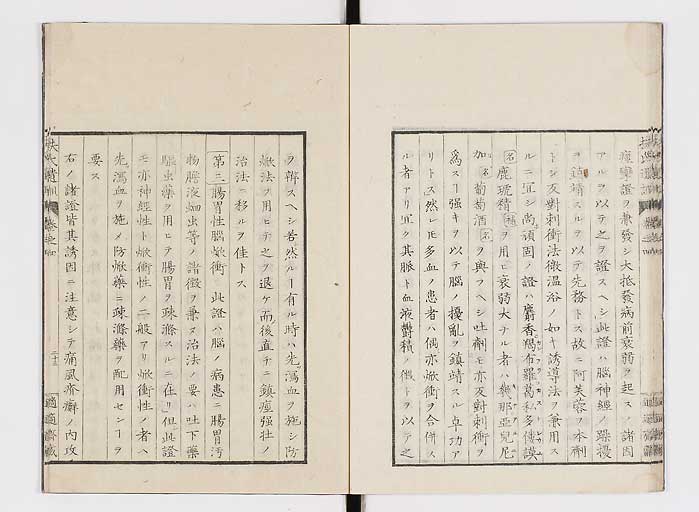 痙攣證ヲ兼發シ大抵發病前衰弱ヲ起ス 諸因
アルヲ以テ之ヲ證スヘシ此證ハ腦神經ノ躁擾
ヲ鎮靖スルヲ以テ先務トス故ニ阿芙蓉ヲ本劑
トシ反對刺衝法微溫浴ノ如キ誘導法ヲ兼用ス
ルニ宜シ尚頑固ノ證ハ麝香
鹿琥珀ヲ用ヒ衰弱大ナル者ハ幾那亞兒尼
加葡萄酒ヲ與フヘシ吐劑モ亦反對刺衝ヲ
爲スヿ强キヲ以テ腦ノ擾亂ヲ鎮靖スル卓功ア
リトス然レ𪜈多血ノ患者ハ偶亦焮衝ヲ合併ス
ル者アリ宜ク其脈ト血液欝積ノ徵トヲ以テ之
ヲ辨スヘシ若然ルヿ有ル時ハ先瀉血ヲ施シ防
焮法ヲ用ヒテ之ヲ退ケ而後直チニ鎮痙强壯ノ
治法ニ移ルヲ佳トス
第三腸胃性腦焮衝 此證ハ腦ノ病患ニ腸胃汚
物膽液蚘虫等ノ諸徵ヲ兼ヌ治法ノ要ハ吐下藥
驅虫藥ヲ用ヒテ腸胃ヲ疎滌スルニ在リ但此證
モ亦神經性ト焮衝性ノ二般アリ焮衝性ノ者ハ
先瀉血ヲ施メ防焮藥ニ疎滌藥ヲ配用センヿヲ
要ス
右ノ諸證皆其誘因ニ注意シテ痛風疥癬ノ内攻
扶氏遺訓 卷之四
二十三
適適齋藏